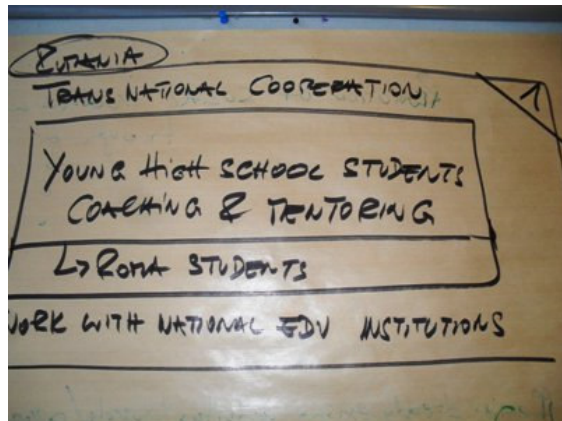 TRANSNATIONAL COOPERATION
1
YOUNG HIGH SCHOOL STUDENTS
COACHING & MENTORING
↳ ROMA STUDENTS
WORK WITH NATIONAL EDU INSTITUTIONS